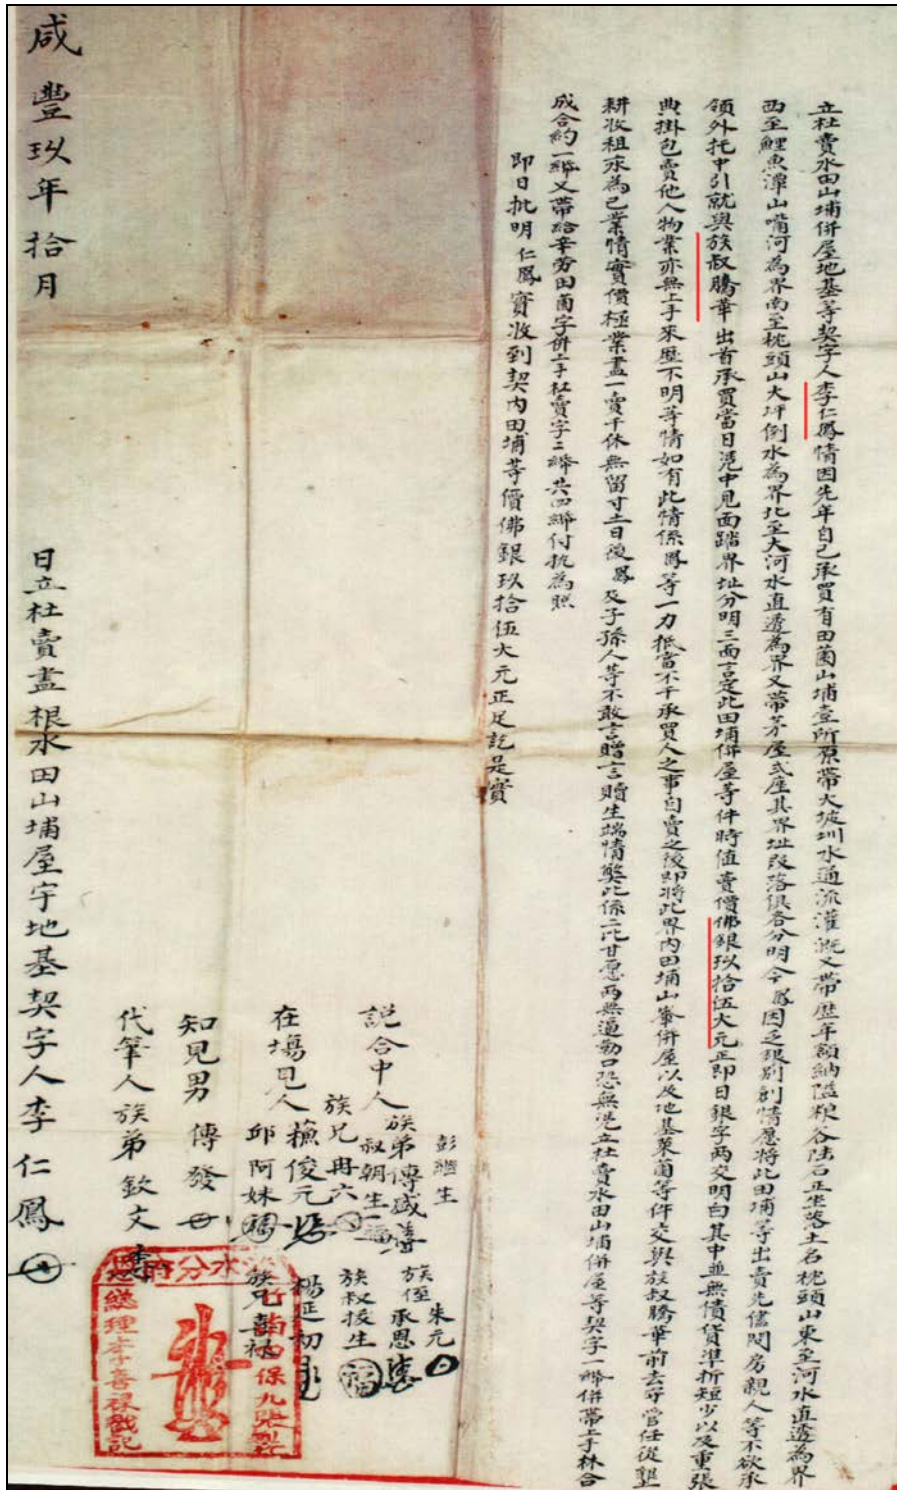 立杜賣水田山埔併屋地基等契字人李仁鳳情因先年自己承買有田薗山埔壹所原帶大坡圳水通流灌溉又帶歷年額納隘粮谷陆石正坐落土名枕頭山東至河水直透為界
西至鯉魚潭山嘴河為界南至枕頭山大坪倒水為界北至大河水直透為界又帶茅屋弍座其界址段落俱各分明今鳳因乏銀別創情愿將此田埔等出賣先儘問房親人等不欲承
領外托中引就與族叔騰華出首承買當日凴中見面踏界址分明三面言定此田埔併屋等件時值賣價佛銀玖拾伍大元正即日銀字両交明白其中並無債貨準折短少以及重張
典掛包賣他人物業亦無上手來歷不明等情如有此情係鳳等一力抵當不干承買人之事自賣之後即將此界內田埔山崙併屋以及地基菜薗等件交與族叔騰華前去守管任從墾
耕收租永為己業情實價極業盡一賣千休無留寸土日後鳳及子孫人等不敢言贈言贖生端情弊此係二比甘愿両無逼勒口恐無凴立杜賣水田山埔併屋等契字一帋併帶上手林合
成合約一帋又帶給辛劳田薗字併上手杜賣字二帋共四帋付执為照
即日批明仁鳳實收到契內田埔等價佛銀玖拾伍大元正足訖是實
彭
生
說合中人族弟傳盛
叔朝生
族兄冉六
朱元
族侄承恩
族叔接生
在塲見人蘓俊元
邱阿妹
楊廷初
族兄喜祿
知見男傳發
代筆人族弟欽文
咸豐玖年拾月
日立杜賣盡根水田山埔屋宇地基契字人李仁鳳
福
水分府
總理李喜祿戳記
保九